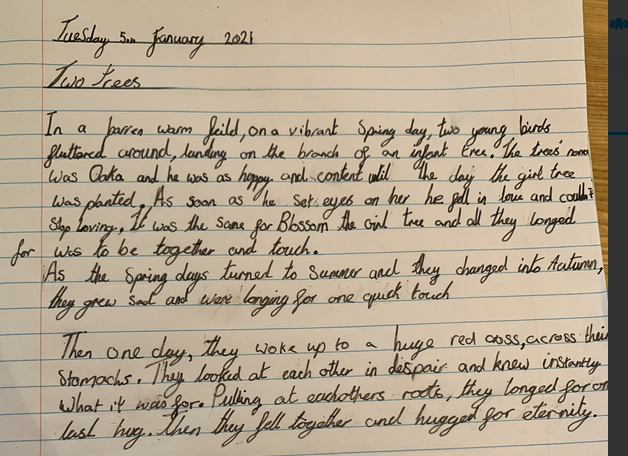 Tuesday 5th January 2021
Two Trees
In a barren warm feild, on a vibrant Spring day, two young birds
fluttered around, landing on the branch of an infant tree. The trees' name
was Oaka and he was as happy and content until the day the girl tree
was planted. As soon as he set eyes on her he fell in love and couldn't
stop loving. It was the same for Blossom the Girl tree and all they longed
for was to be together and touch.
As the Spring days turned to Summer and they changed into Autumn,
they grew sad and were longing for one quick touch
Then one day, they woke up to a huge red cross, across their
Stomachs. They looked at each other in despair and knew instantly
what it was for. Pulling at eachothers roots, they longed for on
last hug. Then they fell together and hugged for eternity.